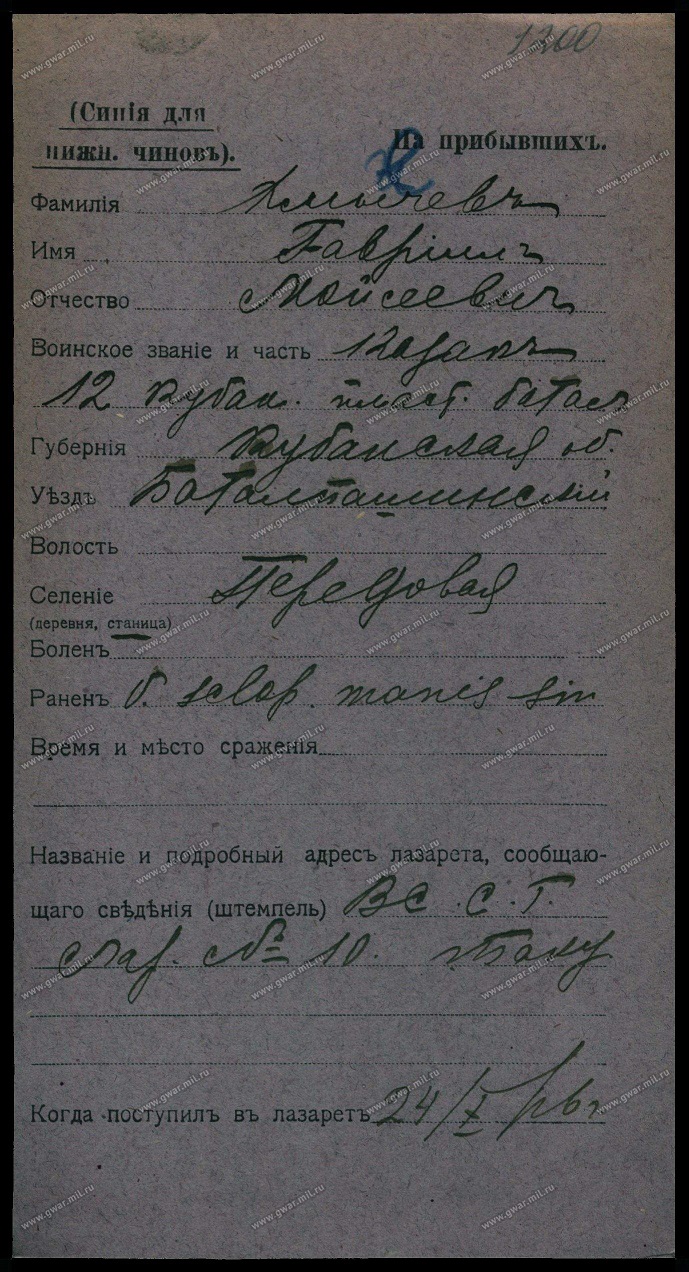 1300
(Синія для
нижн. чиновъ).
На прибывшихъ.
Х
Фамилія Хмычевъ
Имя Гавріилъ
Отчество Мойсеевич
Воинское званіе и часть Козакъ
12 Кубан. пласт. батал
Губернія Кубанская об.
Уѣздъ Баталпашинскій
Волость
Селеніе Передовая
(деревня, станица)
Боленъ
Раненъ V. sclop. manis sin
Время и мѣсто сраженія
Названіе и подробный адресъ лазарета, сообщаю-
щаго свѣдѣнія (штемпель) ВС. С. Г.
Лаз. № 10. Баку
Когда поступилъ въ лазаретъ 24/X
www.gwar.mil.ru